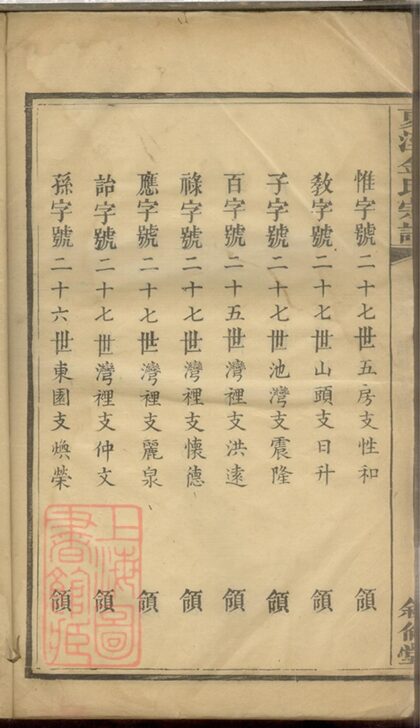 惟字號二十七世五房支性和 領
教字號二十七世山頭支日升 領
子字號二十七世池灣支震隆 領
百字號二十五世灣裡支洪遠 領
祿字號二十七世灣裡支懷德 領
應字號二十七世灣裡支麗泉 領
詒字號二十七世灣裡支仲文 領
孫字號二十六世東園支煥榮 領
上海圖書館藏